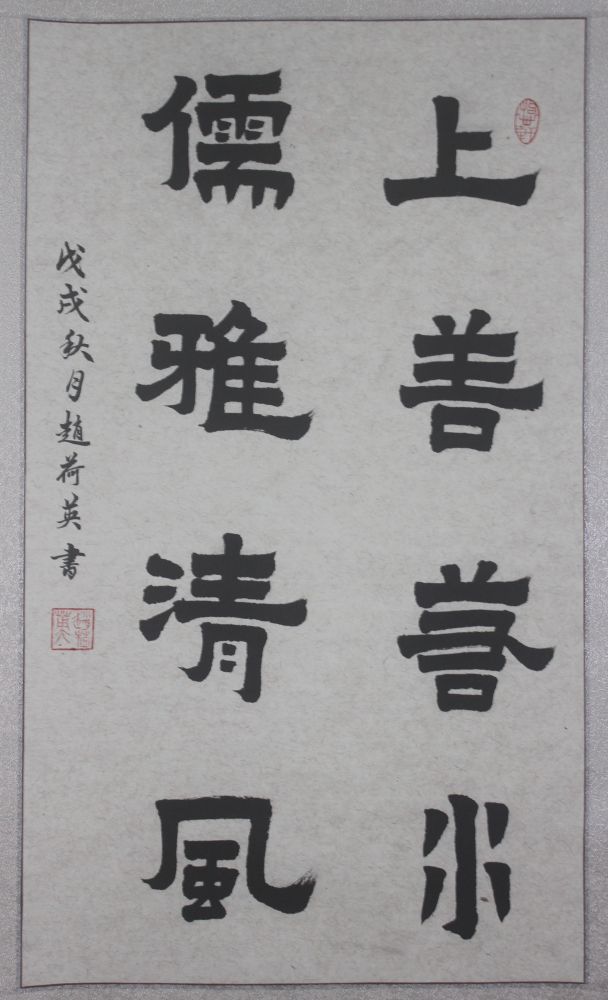 上善若水
儒雅清風
戊戌秋月趙荷英書